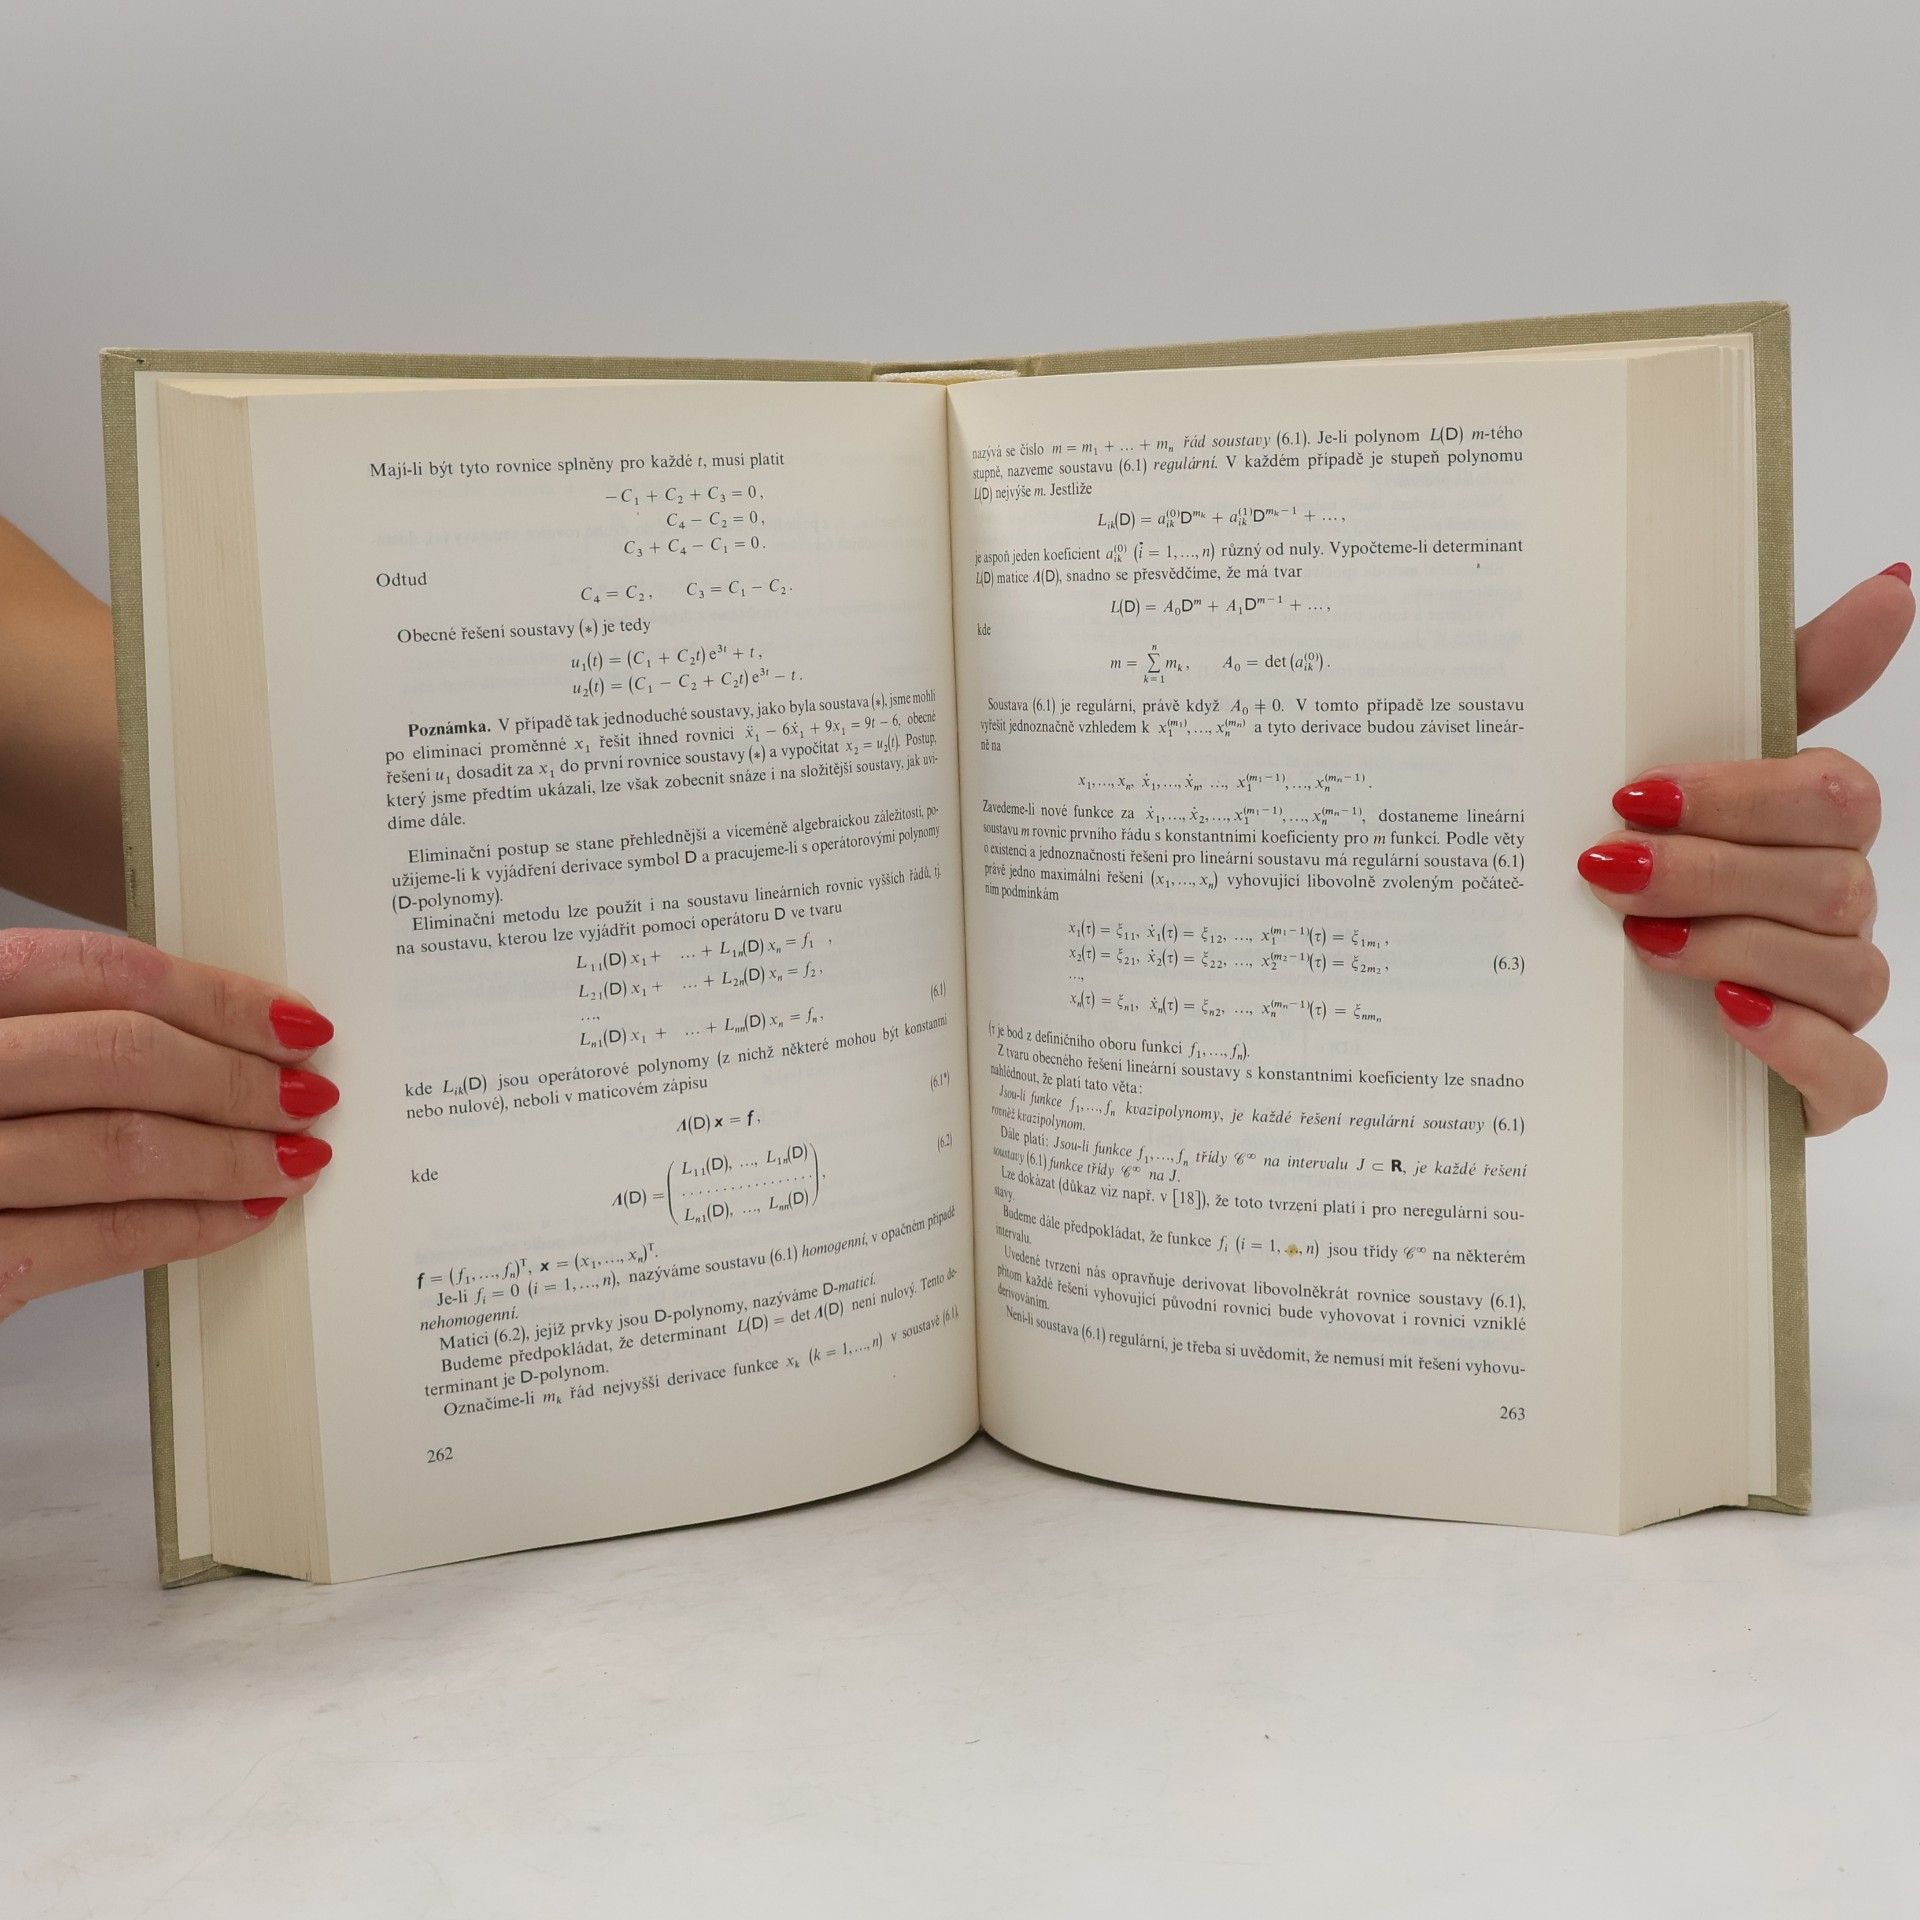 Mají-li být tyto rovnice splněny pro každé t, musí platit
−C₁ + C₂ + C₃ = 0,
C₄ − C₂ = 0,
C₃ + C₄ − C₁ = 0.
Odtud
C₄ = C₂, C₃ = C₁ − C₂.
Obecné řešení soustavy (∗) je tedy
u₁(t) = (C₁ + C₂t) e³ᵗ + t,
u₂(t) = (C₁ − C₂ + C₂t) e³ᵗ − t.
Poznámka. V případě tak jednoduché soustavy, jako byla soustava (∗), jsme mohli
po eliminaci proměnné x₁ řešit ihned rovnici ẍ₁ − 6ẋ₁ + 9x₁ = 9t − 6, obecné
řešení u₁ dosadit za x₁ do první rovnice soustavy (∗) a vypočítat x₂ = u₂(t). Postup,
který jsme předtím ukázali, lze však zobecnit snáze i na složitější soustavy, jak uvi-
díme dále.
Eliminační postup se stane přehlednější a víceméně algebraickou záležitostí, po-
užijeme-li k vyjádření derivace symbol D a pracujeme-li s operátorovými polynomy
(D-polynomy).
Eliminační metodu lze použít i na soustavu lineárních rovnic vyšších řádů, tj.
na soustavu, kterou lze vyjádřit pomocí operátoru D ve tvaru
L₁₁(D) x₁ + ... + L₁ₙ(D) xₙ = f₁ ,
L₂₁(D) x₁ + ... + L₂ₙ(D) xₙ = f₂,
...,
(6.1)
Lₙ₁(D) x₁ + ... + Lₙₙ(D) xₙ = fₙ,
kde Lᵢₖ(D) jsou operátorové polynomy (z nichž některé mohou být konstantní
nebo nulové), neboli v maticovém zápisu
Λ(D) x = f, (6.1*)
kde
Λ(D) = ( L₁₁(D), ..., L₁ₙ(D) (6.2)
................
Lₙ₁(D), ..., Lₙₙ(D) ),
f = (f₁, ..., fₙ)ᵀ, x = (x₁, ..., xₙ)ᵀ.
Je-li fᵢ = 0 (i = 1, ..., n), nazýváme soustavu (6.1) homogenní, v opačném případě
nehomogenní.
Matici (6.2), jejíž prvky jsou D-polynomy, nazýváme D-maticí.
Budeme předpokládat, že determinant L(D) = det Λ(D) není nulový. Tento de-
terminant je D-polynom.
Označíme-li mₖ řád nejvyšší derivace funkce xₖ (k = 1, ..., n) v soustavě (6.1),
262
nazývá se číslo m = m₁ + ... + mₙ řád soustavy (6.1). Je-li polynom L(D) m-tého
stupně, nazveme soustavu (6.1) regulární. V každém případě je stupeň polynomu
L(D) nejvýše m. Jestliže
Lᵢₖ(D) = aᵢₖ⁽⁰⁾D^{mₖ} + aᵢₖ⁽¹⁾D^{mₖ−1} + ...,
je aspoň jeden koeficient aᵢₖ⁽⁰⁾ (i = 1, ..., n) různý od nuly. Vypočteme-li determinant
L(D) matice Λ(D), snadno se přesvědčíme, že má tvar
L(D) = A₀Dᵐ + A₁Dᵐ⁻¹ + ...,
kde
m = ∑_{k=1}^{n} mₖ, A₀ = det (aᵢₖ⁽⁰⁾).
Soustava (6.1) je regulární, právě když A₀ ≠ 0. V tomto případě lze soustavu
vyřešit jednoznačně vzhledem k x₁^{(m₁)}, ..., xₙ^{(mₙ)} a tyto derivace budou záviset lineár-
ně na
x₁, ..., xₙ, ẋ₁, ..., ẋₙ, ..., x₁^{(m₁−1)}, ..., xₙ^{(mₙ−1)}.
Zavedeme-li nové funkce za ẋ₁, ..., ẋ₂, ..., x₁^{(m₁−1)}, ..., xₙ^{(mₙ−1)}, dostaneme lineární
soustavu m rovnic prvního řádu s konstantními koeficienty pro m funkcí. Podle věty
o existenci a jednoznačnosti řešení pro lineární soustavu má regulární soustava (6.1)
právě jedno maximální řešení (x₁, ..., xₙ) vyhovující libovolně zvoleným počáteč-
ním podmínkám
x₁(τ) = ξ₁₁, ẋ₁(τ) = ξ₁₂, ..., x₁^{(m₁−1)}(τ) = ξ_{1m₁},
x₂(τ) = ξ₂₁, ẋ₂(τ) = ξ₂₂, ..., x₂^{(m₂−1)}(τ) = ξ_{2m₂}, (6.3)
...,
xₙ(τ) = ξₙ₁, ẋₙ(τ) = ξₙ₂, ..., xₙ^{(mₙ−1)}(τ) = ξ_{nmₙ}
(τ je bod z definičního oboru funkcí f₁, ..., fₙ).
Z tvaru obecného řešení lineární soustavy s konstantními koeficienty lze snadno
nahlédnout, že platí tato věta:
Jsou-li funkce f₁, ..., fₙ kvazipolynomy, je každé řešení regulární soustavy (6.1)
rovněž kvazipolynom.
Dále platí: Jsou-li funkce f₁, ..., fₙ třídy 𝒞^∞ na intervalu J ⊂ R, je každé řešení
soustavy (6.1) funkce třídy 𝒞^∞ na J.
Lze dokázat (důkaz viz např. v [18]), že toto tvrzení platí i pro neregulární sou-
stavy.
Budeme dále předpokládat, že funkce fᵢ (i = 1, ..., n) jsou třídy 𝒞^∞ na některém
intervalu.
Uvedené tvrzení nás opravňuje derivovat libovolněkrát rovnice soustavy (6.1),
přitom každé řešení vyhovující původní rovnici bude vyhovovat i rovnici vzniklé
derivováním.
Není-li soustava (6.1) regulární, je třeba si uvědomit, že nemusí mít řešení vyhovu-
263